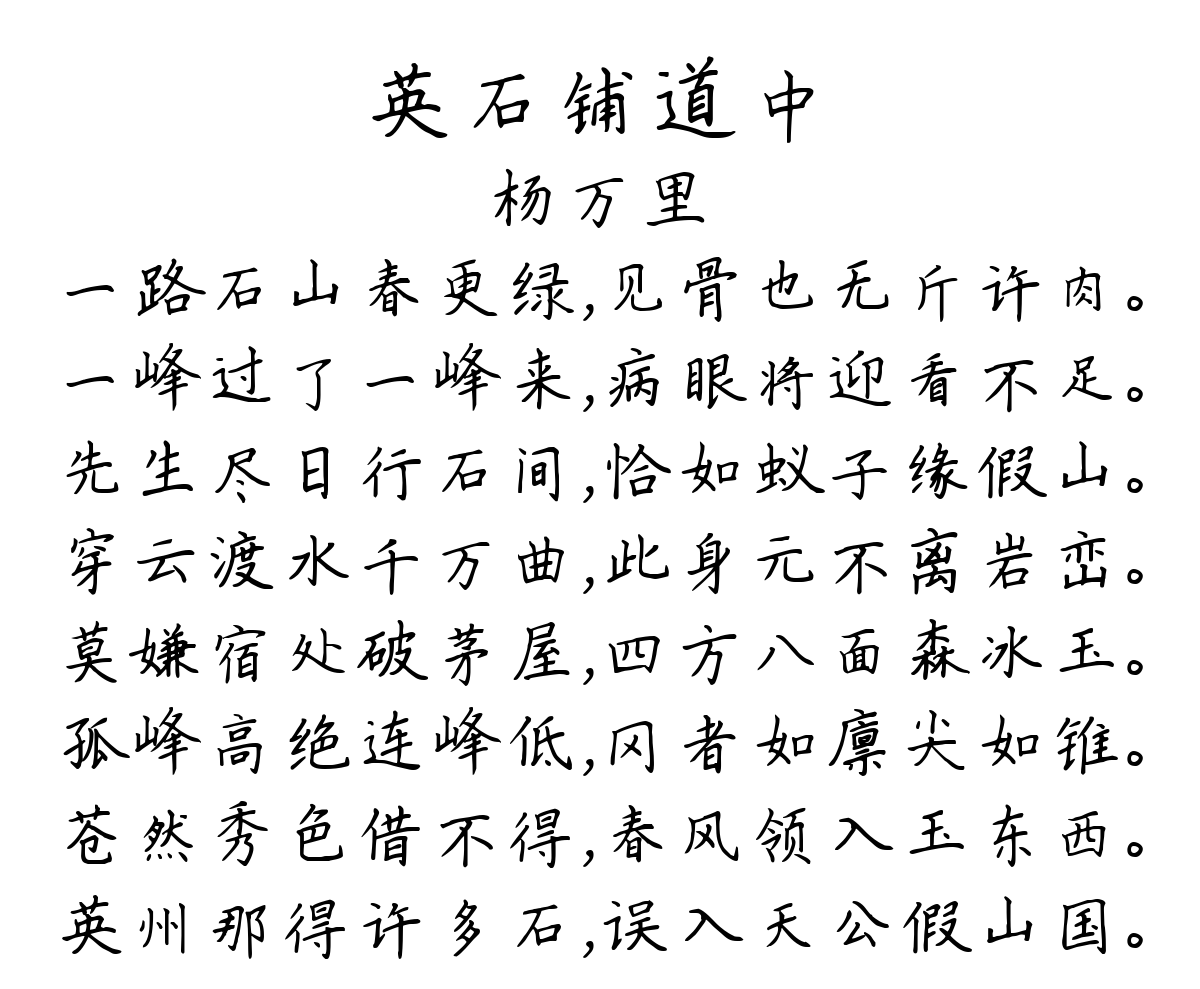 英石铺道中
杨万里
一路石山春更绿,见骨也无斤许肉。
一峰过了一峰来,病眼将迎看不足。
先生尽日行石间,恰如蚁子缘假山。
穿云渡水千万曲,此身元不离岩峦。
莫嫌宿处破茅屋,四方八面森冰玉。
孤峰高绝连峰低,冈者如廪尖如锥。
苍然秀色借不得,春风领入玉东西。
英州那得许多石,误入天公假山国。